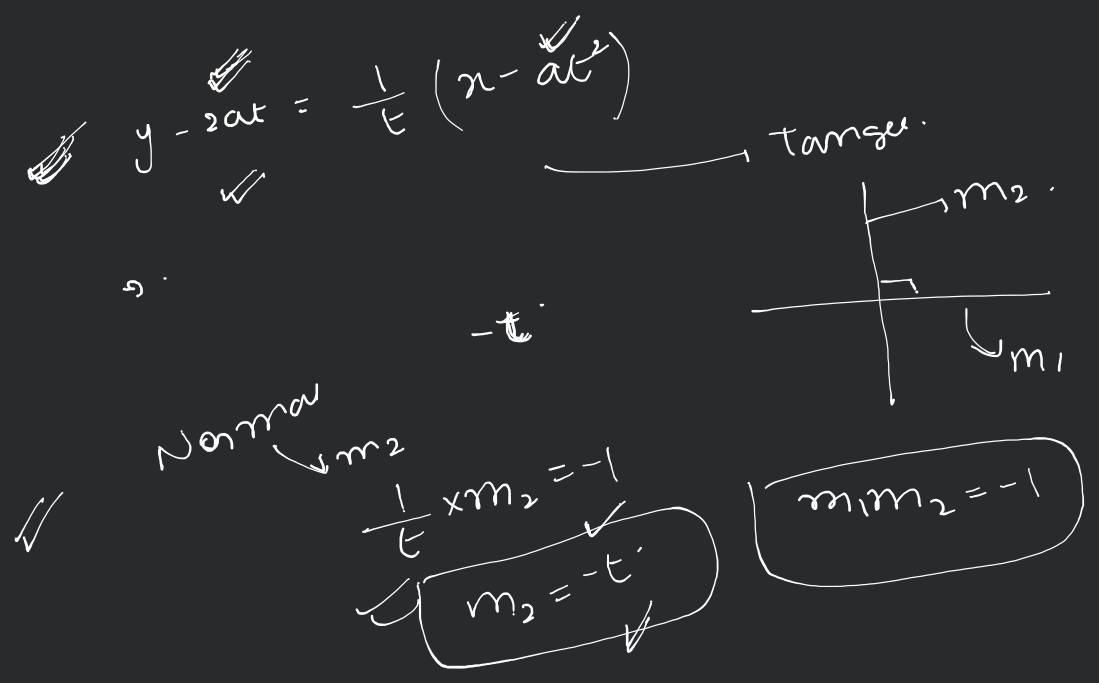 y - 2at = 1/t (x - at²)
Tange.
m2.
-t
m1
Normal
m2
1/t × m2 = -1
m1m2 = -1
m2 = -t